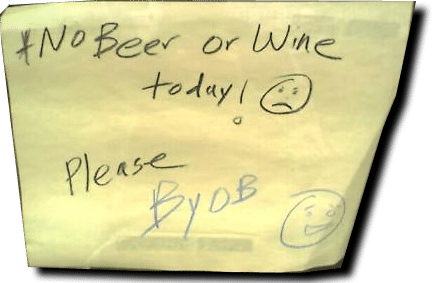 *No Beer or Wine
today!
Please
ByOB